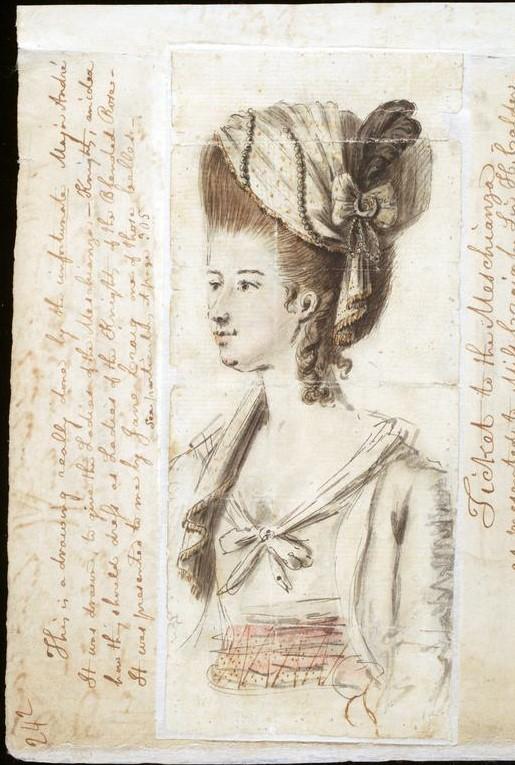 This is a drawing really done by the unfortunate Major André
It was drawn to give the Ladies of the Meschianza — Knights, an idea
how they should dress as Ladies of the Knights of the Blended Rose —
It was presented to me by Jane Craig one of those belles —
See particulars at page 205
242
Ticket to the Meschianza
as presented to Miss